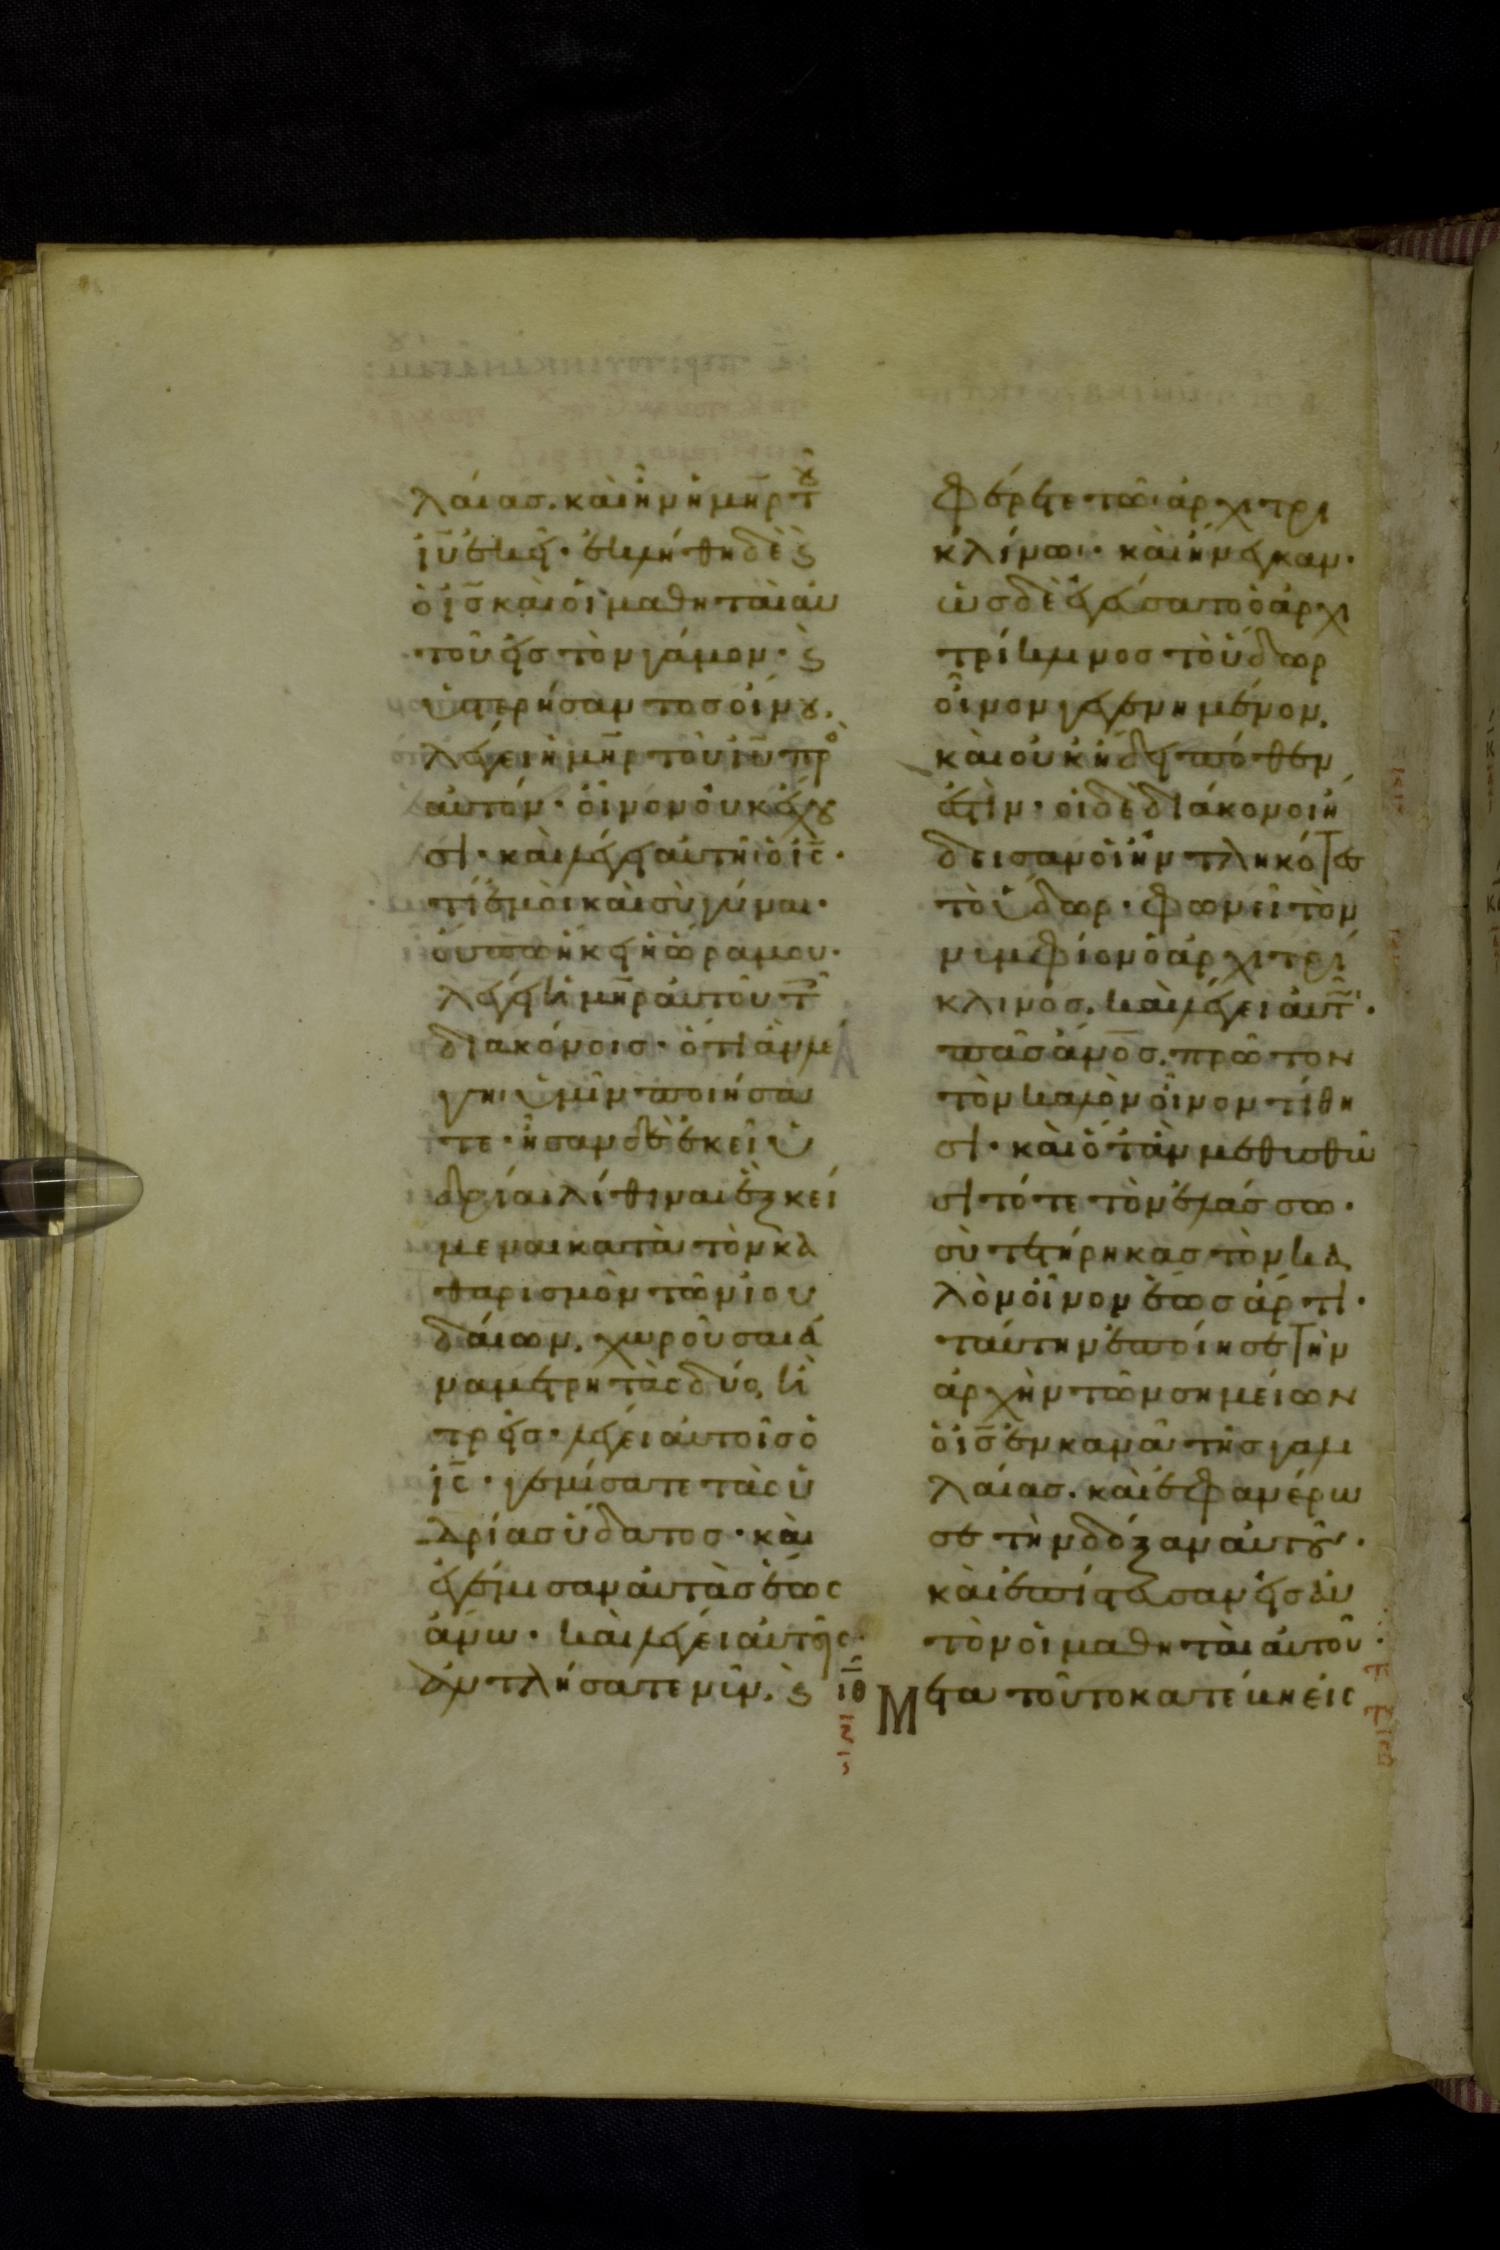 λαίας. καὶ ἦν ἡ μ̅η̅ρ τοῦ
ι̅υ̅ ἐκεῖ· ἐκλήθη δὲ ϗ
ὁ ι̅ς̅ καὶ οἱ μαθηταὶ αὐ
τοῦ εἰς τὸν γάμον· ϗ
ὑστερήσαντος οἴνου.
λέγει ἡ μ̅η̅ρ τοῦ ι̅υ̅ πρὸ
αὐτόν· οἶνον οὐκ ἔχου
σι· καὶ λέγει αὐτῆι ὁ ι̅ς̅·
τί ἐμοὶ καὶ σὺ γύναι·
οὔπω ἥκει ἡ ὥρα μου·
λέγει ἡ μ̅η̅ρ αὐτοῦ τοῖ
διακόνοις· ὅτι ἂν λέ
γηι ὑμῖν ποιήσα
τε· ἦσαν δὲ ἐκεῖ ὑ
δρίαι λίθιναι ἓξ κεί
μεναι κατὰ τὸν κα
θαρισμὸν τῶν ἰου
δαίων. χωροῦσαι ἀ
νὰ μετρητὰς δύο ἢ
τρεῖς· λέγει αὐτοῖς ὁ
ι̅ς̅· γεμίσατε τὰς ὑ
δρίας ὕδατος· καὶ
ἐγέμισαν αὐτὰς ἕως
ἄνω· καὶ λέγει αὐτοῖς·
ἀντλήσατε νῦν. ϗ
φέρετε τῶι ἀρχιτρι
κλίνωι· καὶ ἤνεγκαν·
ὡς δὲ ἐγεύσατο ὁ ἀρχι
τρίκλινος τὸ ὕδωρ
οἶνον γεγενημένον.
καὶ οὐκ ἤδει πόθεν
ἐστίν· οἱ δὲ διάκονοι ἤ
δεισαν οἱ ἠντληκότες
τὸ ὕδωρ· φωνεῖ τὸν
νυμφίον ὁ ἀρχιτρί
κλινος. καὶ λέγει αὐτῶ·
πᾶς ἄν̅ο̅ς. πρῶτον
τὸν καλὸν οἶνον τίθη
σι· καὶ ὅταν μεθυσθῶ
σι τότε τὸν ἐλάσσω·
σὺ τετήρηκας τὸν κα
λὸν οἶνον ἕως ἄρτι·
ταύτην ἐποίησε τὴν
ἀρχὴν τῶν σημείων
ὁ ι̅ς̅ ἐν κανᾶ τῆς γαλι
λαίας. καὶ ἐφανέρω
σε τὴν δόξαν αὐτοῦ·
καὶ ἐπίστευσαν εἰς αὐ
τὸν οἱ μαθηταὶ αὐτοῦ·
ιθ
Μετὰ τοῦτο κατέβη εἰς